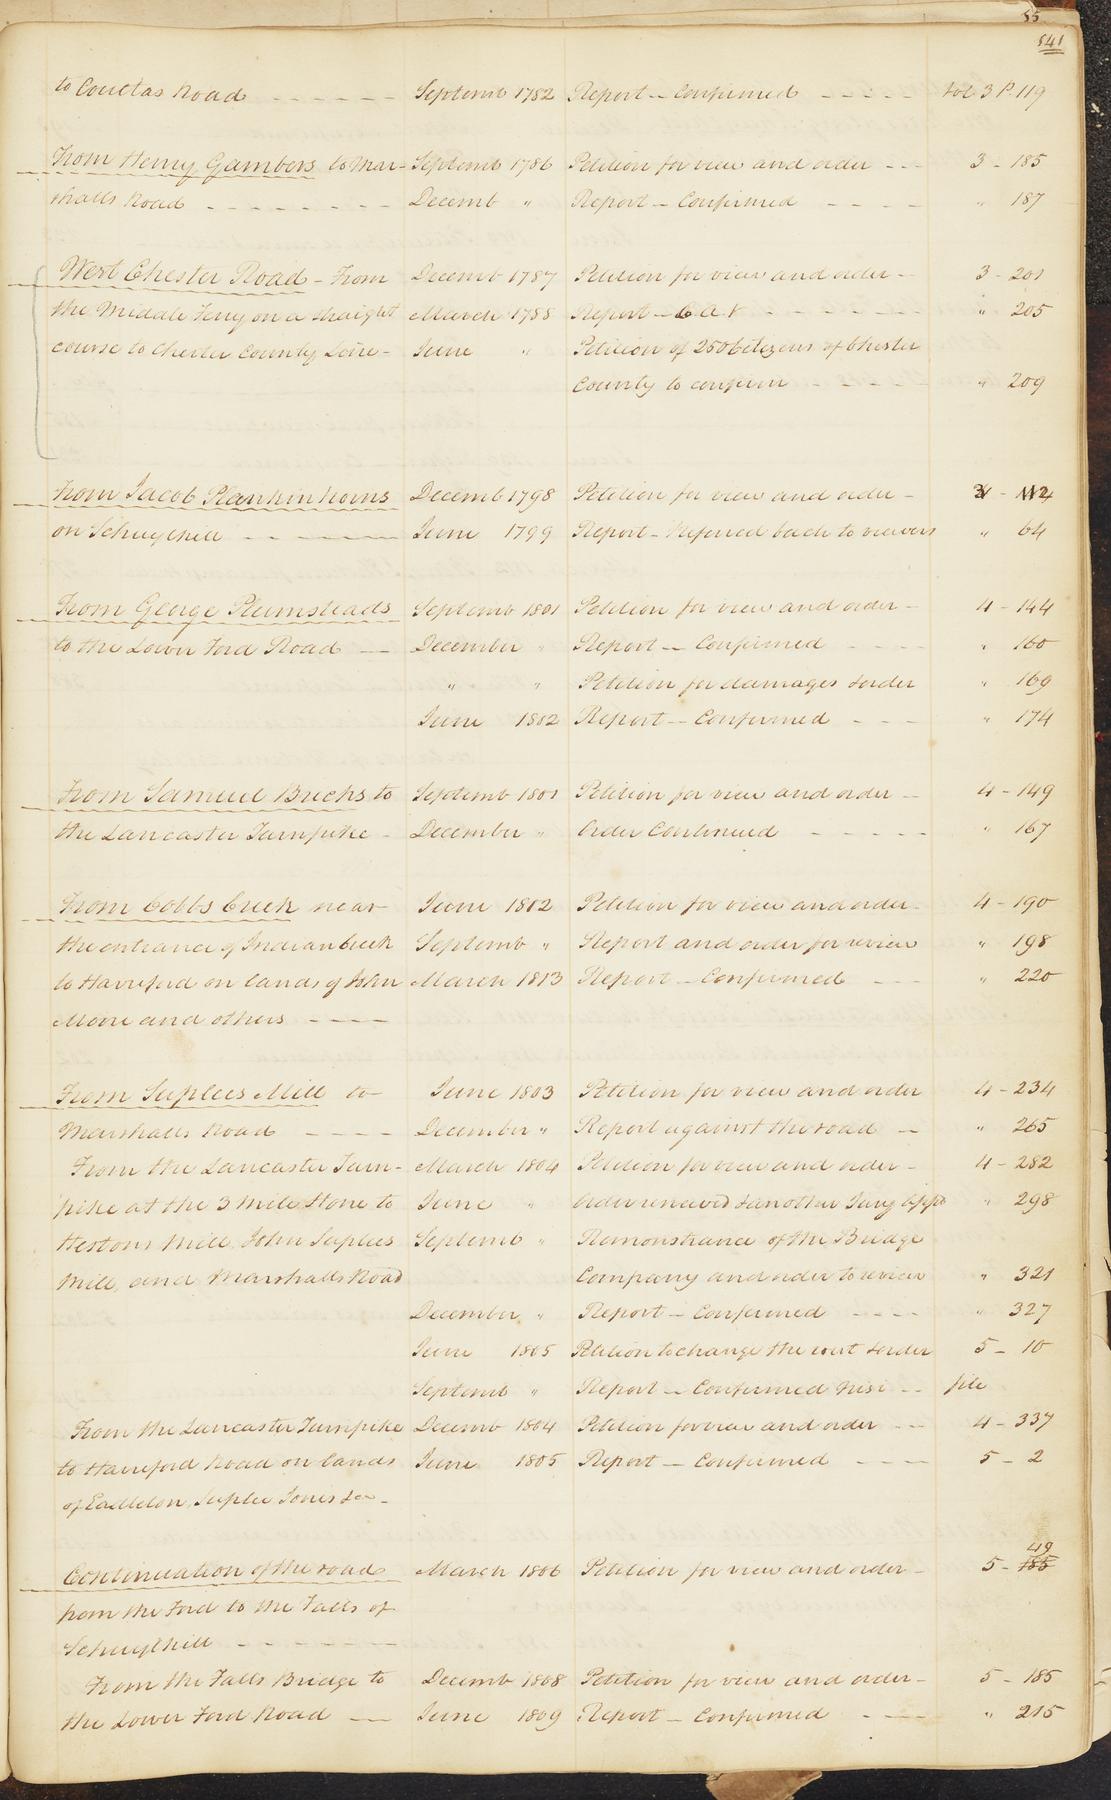 55
541
to Coultas Road - - - - - - Septemb 1782 Report - Confirmed - - - - - Vol 3 P. 119
From Henry Gambers to Mar- Septemb 1786 Petition for view and order - - - 3 - 185
shalls Road - - - - - - - - Decemb " Report - Confirmed - - - - " 187
West Chester Road - From Decemb 1787 Petition for view and order - 3 - 201
the Middle Ferry on a straight March 1788 Report - C A V - - - - - - - " 205
course to Chester County Line - June " Petition of 250 Citizens of Chester
County to confirm - - - - - " 209
From Jacob Plankinhorns Decemb 1798 Petition for view and order -
on Schuylkill - - - - June 1799 Report - Referred back to viewers " 64
From George Plumsteads Septemb 1801 Petition for view and order - 4 - 144
to the Lower Ford Road - December " Report - Confirmed - - - - " 160
" " Petition for damages & order " 169
June 1802 Report - Confirmed - - - " 174
From Samuel Bricks to Septemb 1801 Petition for view and order - 4 - 149
the Lancaster Turnpike - December " Order Continued - - - - - " 167
From Cobbs Creek near June 1802 Petition for view and order - 4 - 190
the entrance of Indian Creek Septemb " Report and order for review " 198
to Harreford on lands of John March 1813 Report - Confirmed - - - " 220
Moore and others - - - -
From Suplees Mill to June 1803 Petition for view and order 4 - 234
Marshalls Road - - - - December " Report against the road - " 265
From the Lancaster Turn- March 1804 Petition for view and order - 4 - 282
pike at the 3 Mile Stone to June " Order renewed & another Jury app " 298
Hestons Mill, John Suplees Septemb " Remonstrance of the Bridge
Mill, and Marshalls Road Company and order to review " 321
December " Report - Confirmed - - - - " 327
June 1805 Petition to change the & order 5 - 10
Septemb " Report - Confirmed Nisi - - file
From the Lancaster Turnpike Decemb 1804 Petition for view and order - - 4 - 337
to Harreford Road on lands June 1805 Report - Confirmed - - - - 5 - 2
of Suplee Jones &c -
49
Continuation of the road March 1806 Petition for view and order - 5 - 185
from the Ford to the Falls of
Schuylkill - - - - - - -
From the Falls Bridge to Decemb 1808 Petition for view and order - 5 - 185
the Lower Ford Road - June 1809 Report - Confirmed - - - - " 215